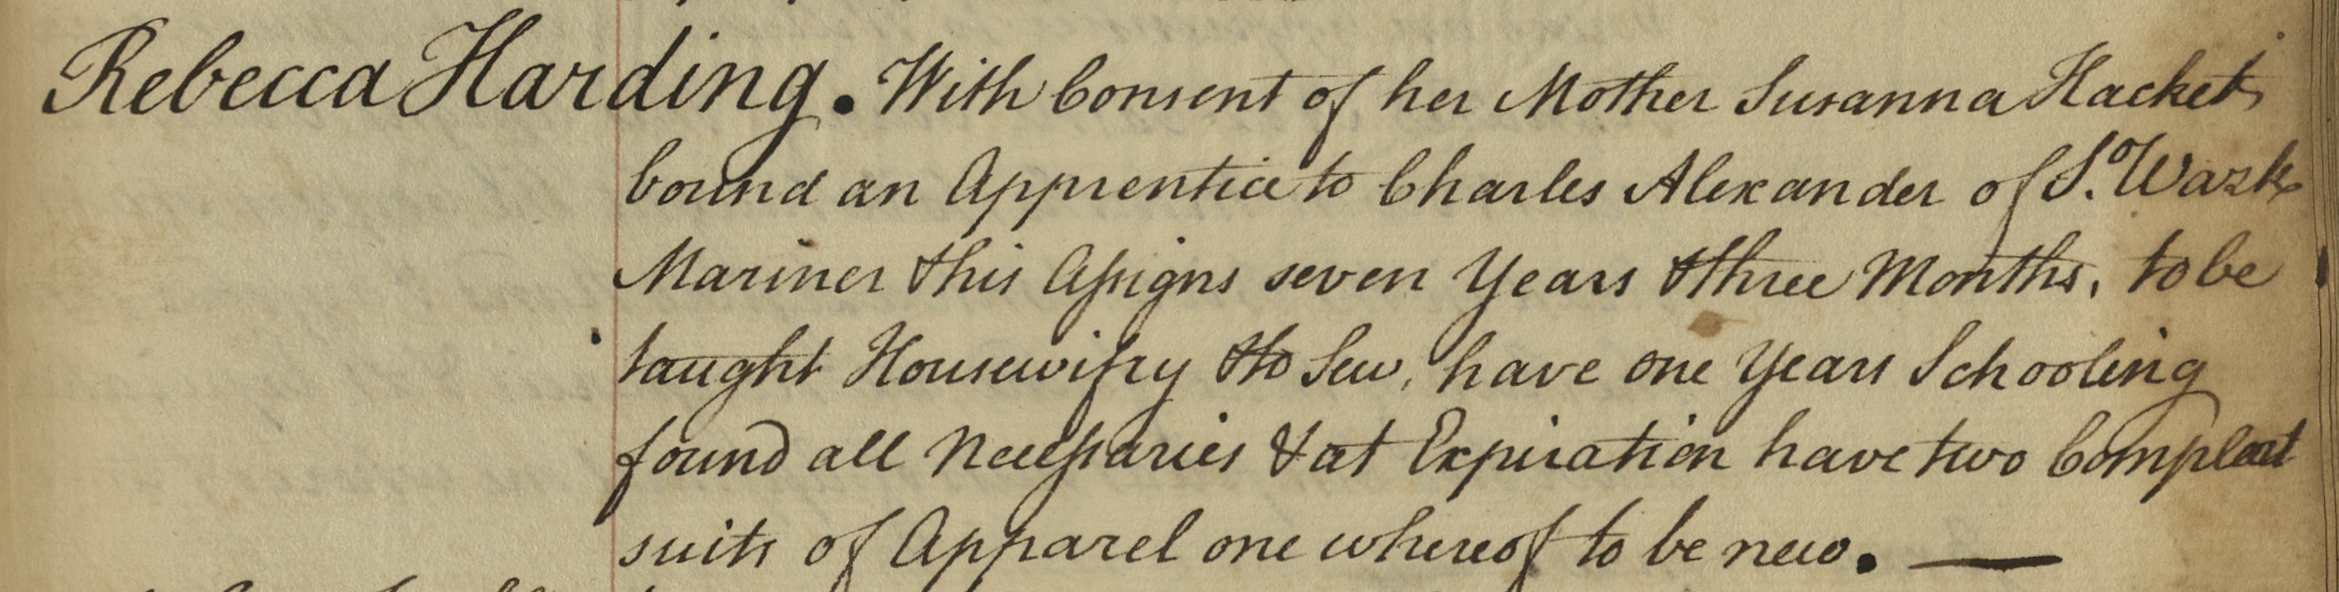 Rebecca Harding. With Consent of her Mother Susanna Hacket
bound an Apprentice to Charles Alexander of So. Wark
Mariner & his Assigns seven Years & three Months, to be
taught Housewifry & to Sew, have one Years Schooling
found all Necessaries & at Expiration have two Compleat
suits of Apparel one whereof to be new. —